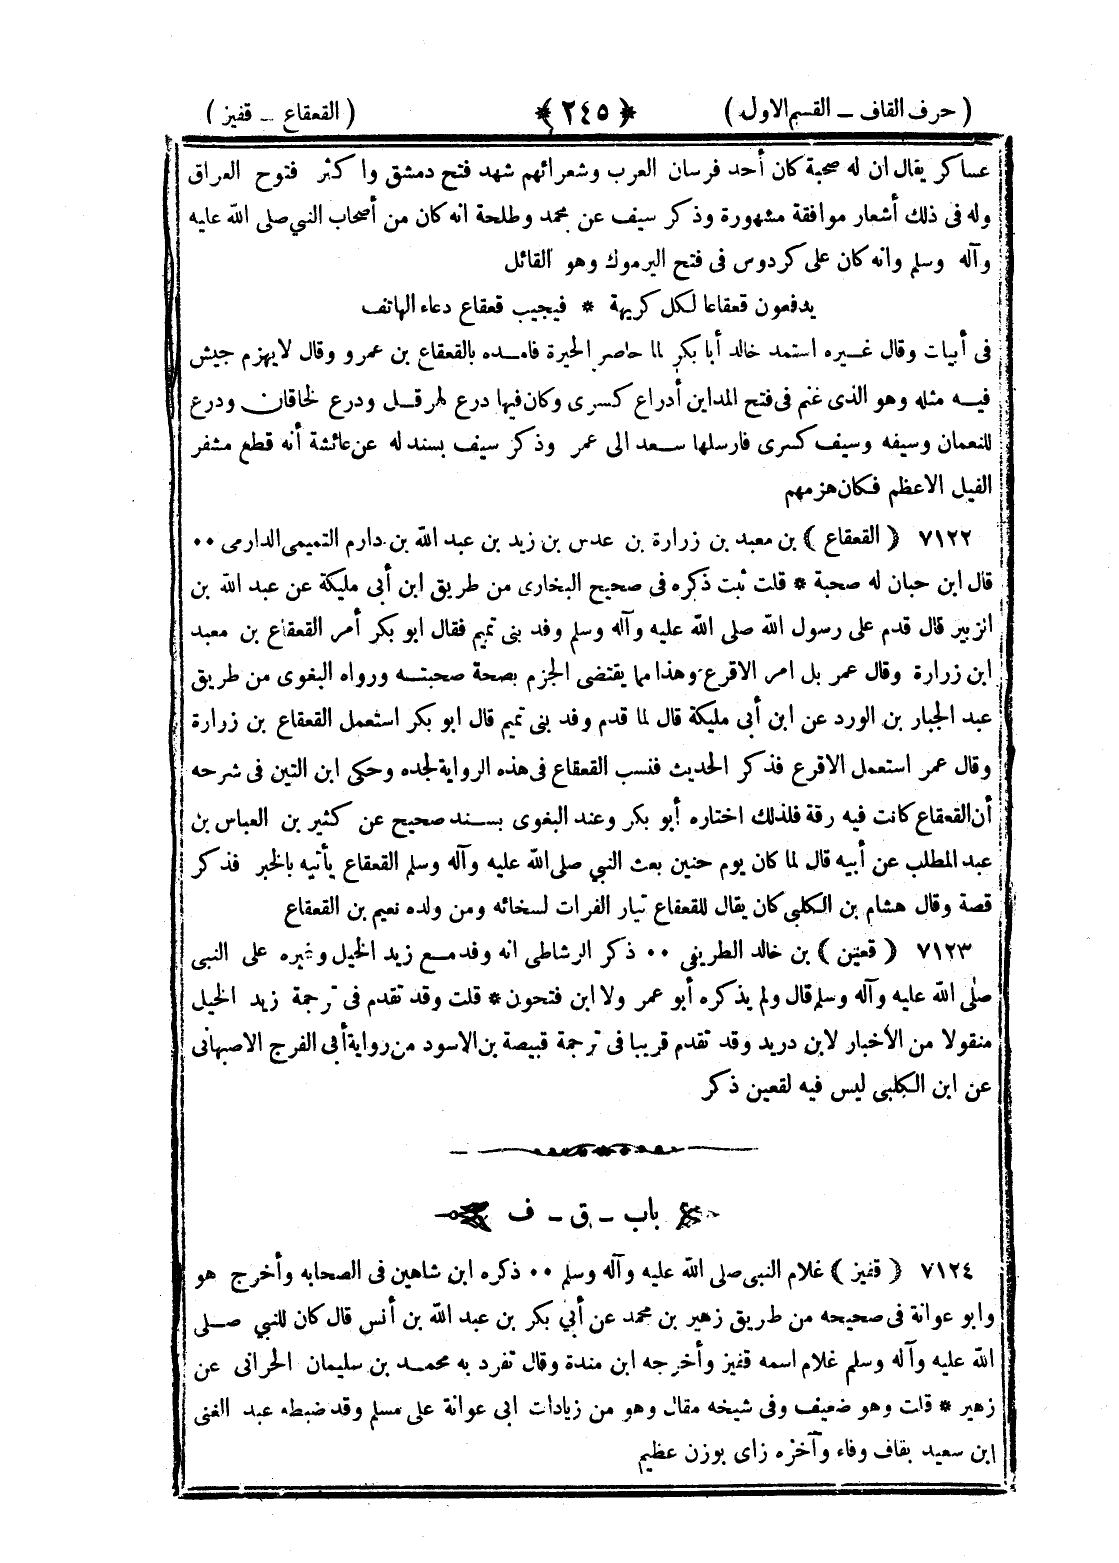 ( حرف القاف – القسم الاول ) ﴿ ٢٤٥ ﴾ ( القعقاع – قفيز )
عساكر يقال ان له صحبة كان أحد فرسان العرب وشعرائهم شهد فتح دمشق واكثر فتوح العراق
وله فى ذلك أشعار موافقة مشهورة وذكر سيف عن محمد وطلحة انه كان من أصحاب النبي صلى الله عليه
وآله وسلم وانه كان على كردوس فى فتح اليرموك وهو القائل
يدفعون قعقاعا لكل كريهة * فيجيب قعقاع دعاء الهاتف
فى أبيات وقال غيره استمد خالد أبا بكر لما حاصر الحيرة فامده بالقعقاع بن عمرو وقال لايهزم جيش
فيه مثله وهو الذى غنم فى فتح المداين أدراع كسرى وكان فيها درع لهرقل ودرع لخاقان ودرع
للنعمان وسيفه وسيف كسرى فارسلها سعد الى عمر وذكر سيف بسند له عن عائشة أنه قطع مشفر
الفيل الاعظم فكان هزمهم
٧١٢٢ ( القعقاع ) بن معبد بن زرارة بن عدس بن زيد بن عبد الله بن دارم التميمى الدارمى ٠٠
قال ابن حبان له صحبة * قلت ثبت ذكره فى صحيح البخارى من طريق ابن أبى مليكة عن عبد الله بن
الزبير قال قدم على رسول الله صلى الله عليه وآله وسلم وفد بنى تميم فقال ابو بكر أمر القعقاع بن معبد
ابن زرارة وقال عمر بل امر الاقرع وهذا مما يقتضى الجزم بصحة صحبته ورواه البغوى من طريق
عبد الجبار بن الورد عن ابن أبى مليكة قال لما قدم وفد بنى تميم قال ابو بكر استعمل القعقاع بن زرارة
وقال عمر استعمل الاقرع فذكر الحديث فنسب القعقاع فى هذه الرواية لجده وحكى ابن التين فى شرحه
أن القعقاع كانت فيه رقة فلذلك اختاره أبو بكر وعند البغوى بسند صحيح عن كثير بن العباس بن
عبد المطلب عن أبيه قال لما كان يوم حنين بعث النبي صلى الله عليه وآله وسلم القعقاع يأتيه بالخبر فذكر
قصة وقال هشام بن الكلبى كان يقال للقعقاع تيار الفرات لسخائه ومن ولده نعيم بن القعقاع
٧١٢٣ ( قعين ) بن خالد الطريفى ٠٠ ذكر الرشاطى انه وفد مع زيد الخيل وغيره على النبى
صلى الله عليه وآله وسلم قال ولم يذكره أبو عمر ولا ابن فتحون * قلت وقد تقدم فى ترجمة زيد الخيل
منقولا من الأخبار لابن دريد وقد تقدم قريبا فى ترجمة قبيصة بن الاسود من رواية أبى الفرج الاصبهانى
عن ابن الكلبى ليس فيه لقعين ذكر
باب – ق – ف
٧١٢٤ ( قفيز ) غلام النبى صلى الله عليه وآله وسلم ٠٠ ذكره ابن شاهين فى الصحابه وأخرج هو
وابو عوانة فى صحيحه من طريق زهير بن محمد عن أبي بكر بن عبد الله بن أنس قال كان للنبي صلى
الله عليه وآله وسلم غلام اسمه قفيز وأخرجه ابن مندة وقال تفرد به محمد بن سليمان الحرانى عن
زهير * قلت وهو ضعيف وفى شيخه مقال وهو من زيادات ابى عوانة على مسلم وقد ضبطه عبد الغنى
ابن سعيد بقاف وفاء وآخره زاى بوزن عظيم